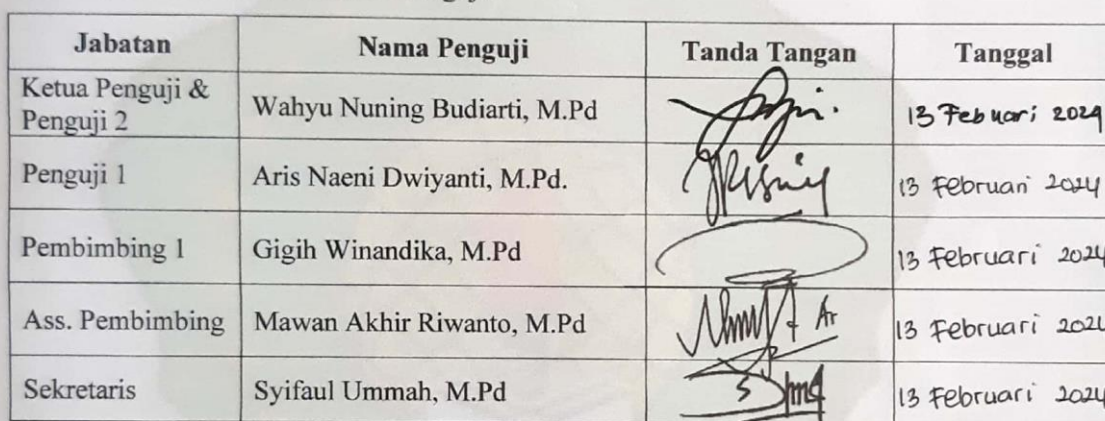 Jabatan Nama Penguji Tanda Tangan Tanggal
Ketua Penguji &
Penguji 2 Wahyu Nuning Budiarti, M.Pd 13 Februari 2024
Penguji 1 Aris Naeni Dwiyanti, M.Pd. 13 Februari 2024
Pembimbing 1 Gigih Winandika, M.Pd 13 Februari 2024
Ass. Pembimbing Mawan Akhir Riwanto, M.Pd 13 Februari 202
Sekretaris Syifaul Ummah, M.Pd 13 Februari 2024